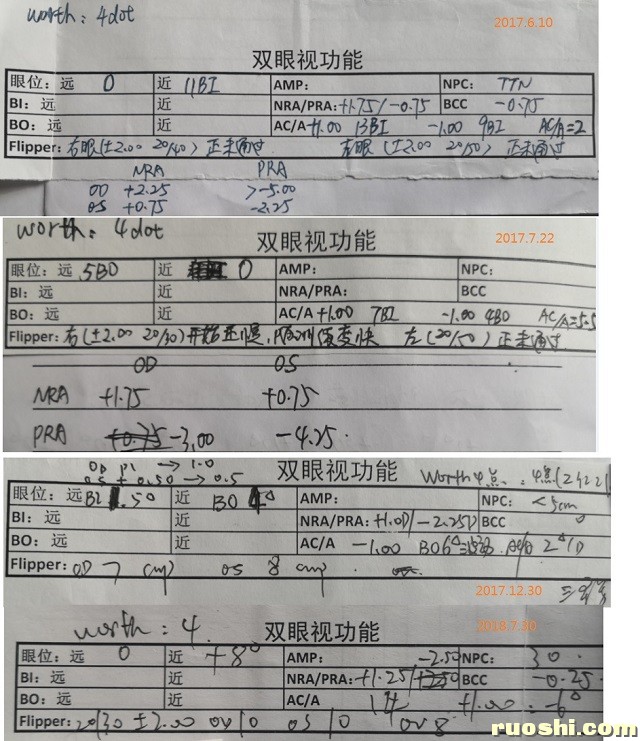 worth: 4dot
2017.6.10
双眼视功能
眼位：远 0 近 11BI AMP: NPC: TTN
BI：远 近 NRA/PRA: +1.75/-0.75 BCC -0.75
BO：远 近 AC/A +1.00 13BI -1.00 9BI AC/A=2
Flipper: 右眼(±2.00 20/40) 正未通过 左眼 (±2.00 20/50) 正未通过
NRA PRA
OD +2.25 >-5.00
OS +0.75 -2.25
worth: 4dot
2017.7.22
双眼视功能
眼位：远 5BO 近 0 AMP: NPC:
BI：远 近 NRA/PRA: BCC
BO：远 近 AC/A +1.00 7BI -1.00 4BO AC/A=5.5
Flipper: 右(±2.00 20/30)开始正慢, 变快 左(20/50)正未通过
OD OS
NRA +1.75 +0.75
PRA -3.00 -4.25
OD pl → 1.0
OS +0.50 → 0.5
双眼视功能
Worth 4点:
眼位：远 BI .50 近 BO AMP: NPC: <5cm
BI：远 近 NRA/PRA: +1.0D/-2.25D BCC 0
BO：远 近 AC/A -1.00 BO6△ 2△/D
Flipper: OD 7 cmp OS 8 cmp
2017.12.30
worth: 4
双眼视功能
2018.7.30
眼位：远 0 近 +8△ AMP: NPC: 30
-2.50
BI：远 近 NRA/PRA: +1.25/ BCC -0.25
BO：远 近 AC/A 14 +1.00: -6△
Flipper: 20/30 ±2.00 OD 10 OS 10 OU 8
ruoshi.com